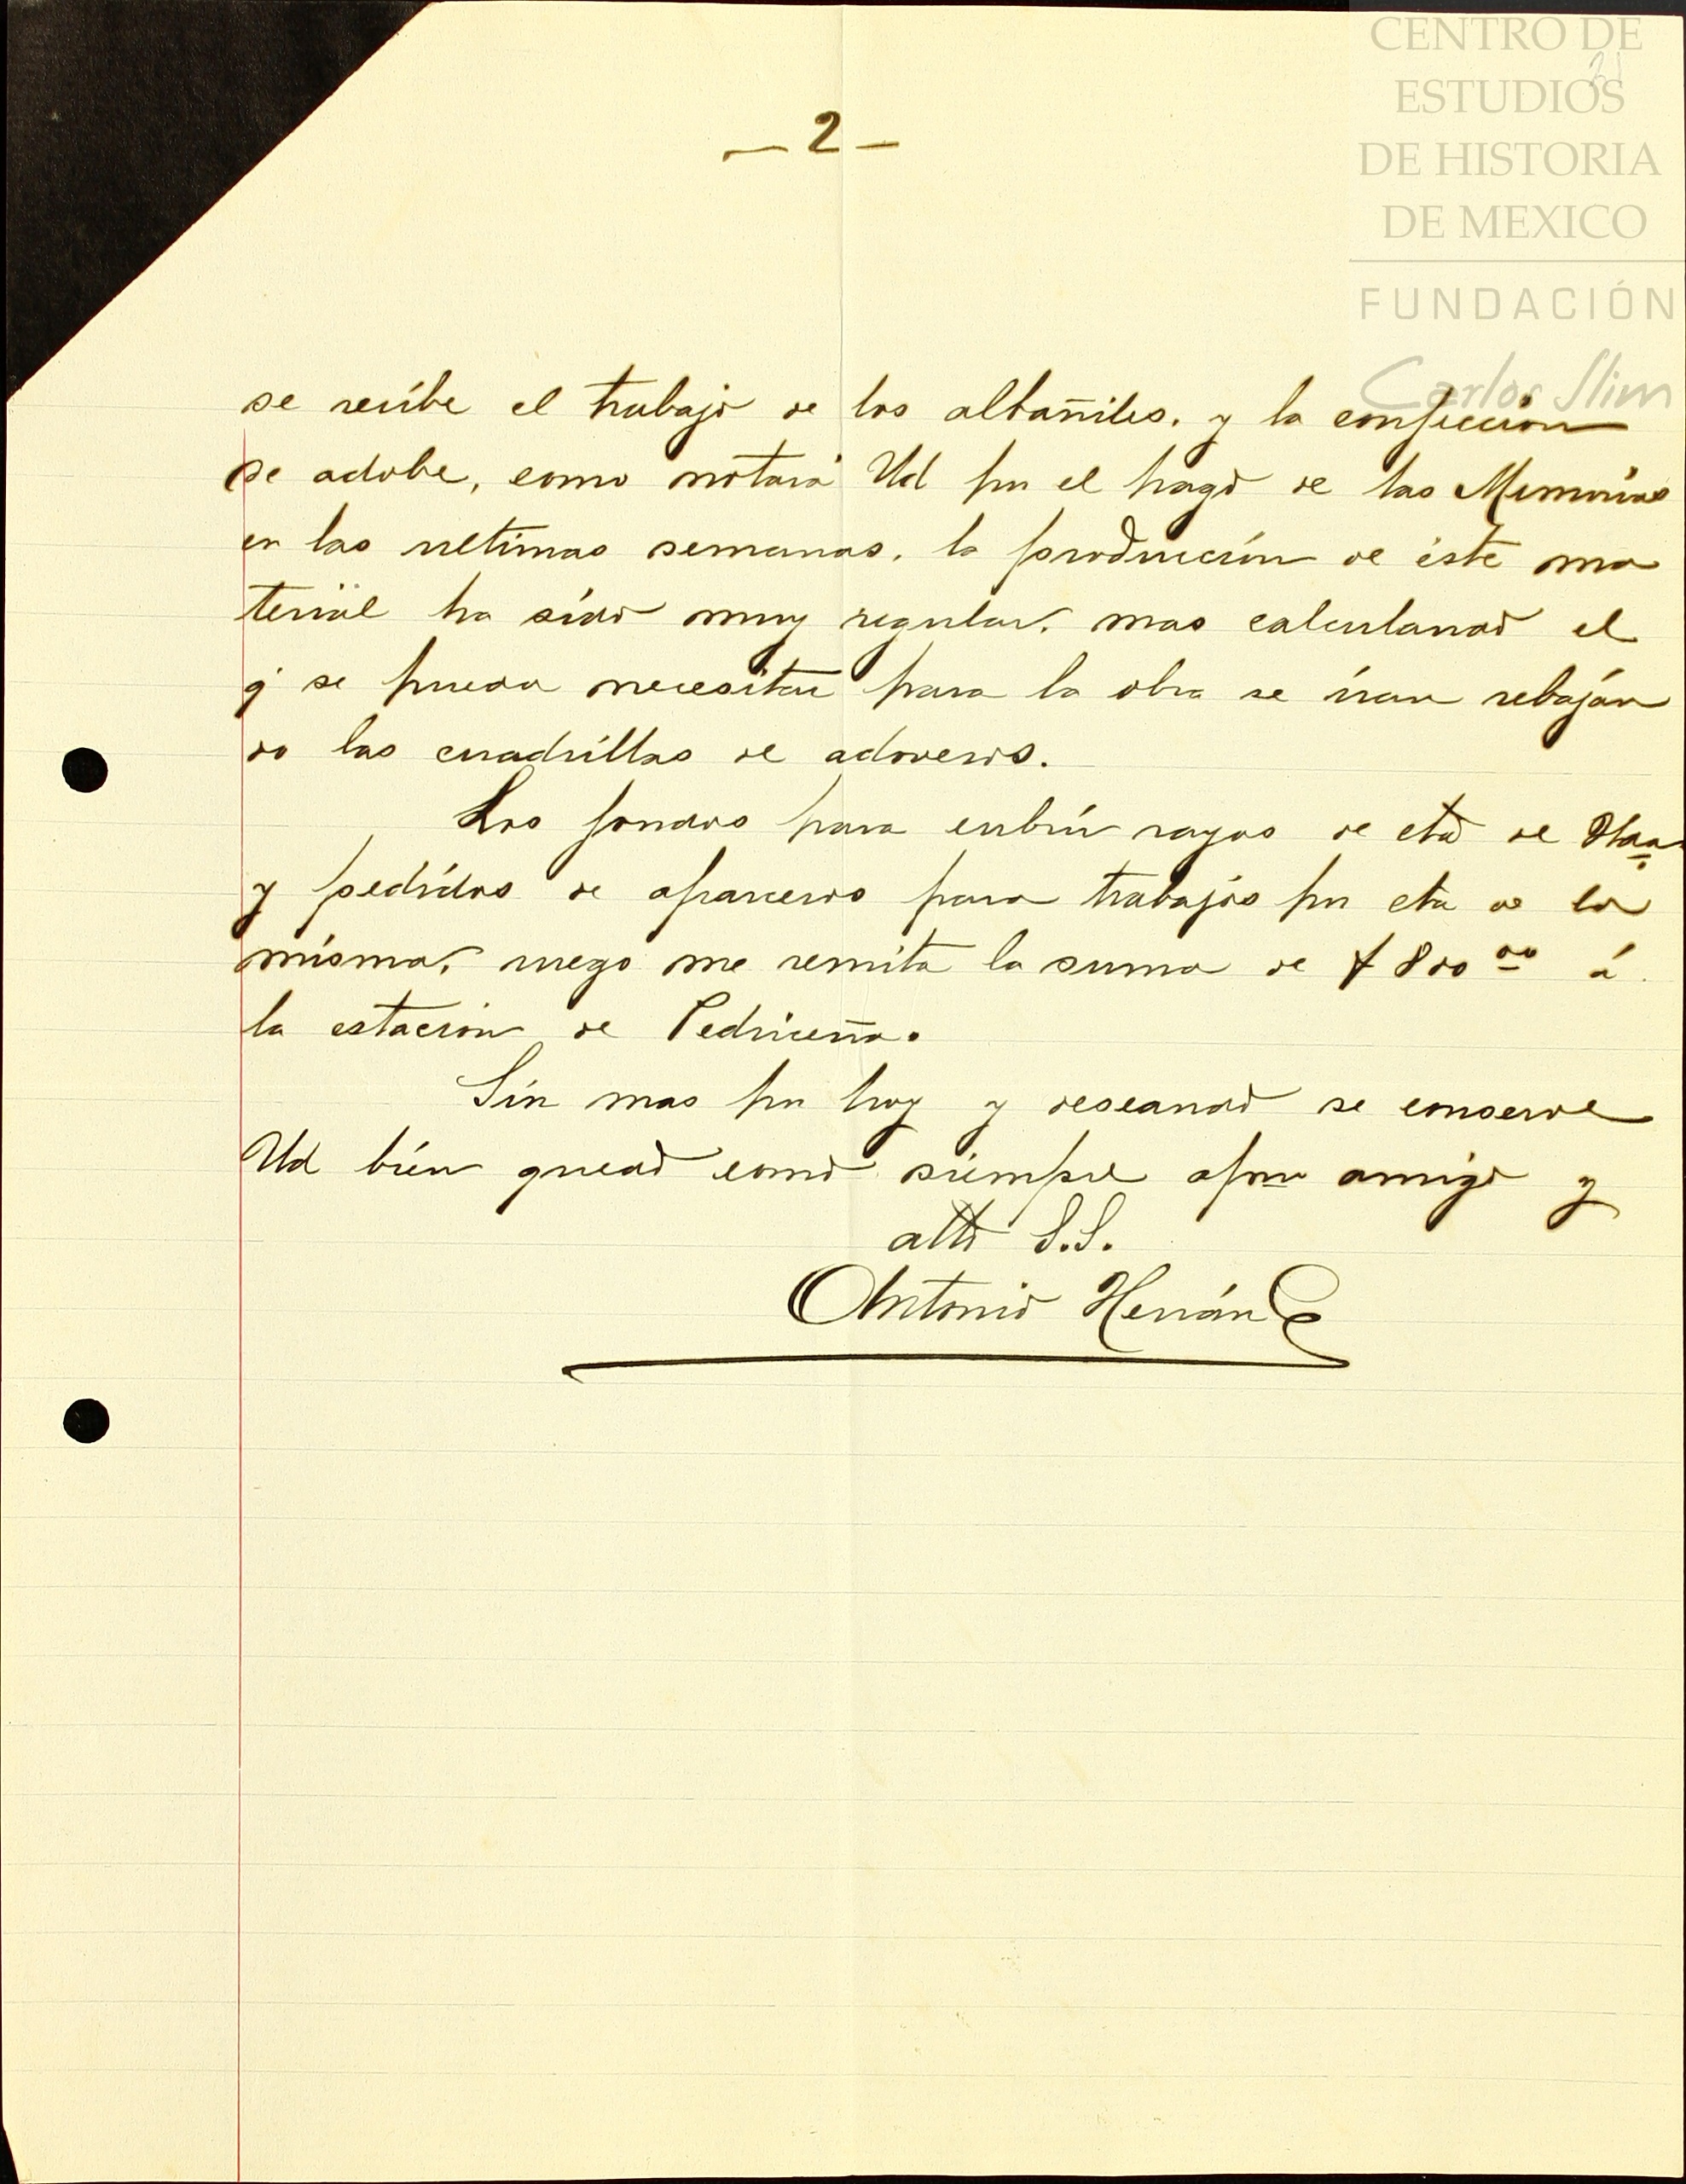 CENTRO DE
ESTUDIOS
DE HISTORIA
DE MEXICO
FUNDACIÓN
Carlos Slim
— 2 —
se recíbe el trabajo de los albañiles. y la confección
de adobe, como notará Ud por el pago de las Memorias
en las ultimas semanas. la producción de éste ma
terial ha sído muy regular. mas calculando el
q' se pueda necesitar para la obra se íran rebaján
do las cuadrillas de adoveros.
Los fondos para cubrír rayas de cta de Hda
y pedídos de aparceros para trabajos por cta de la
mísma, ruego me remita la suma de $ 800 oo á
la estación de Pedriceña.
Sín mas por hoy y deseando se conserve
Ud bíen quedo como siempre afmo amigo y
atto S.S.
Antonio Hernández